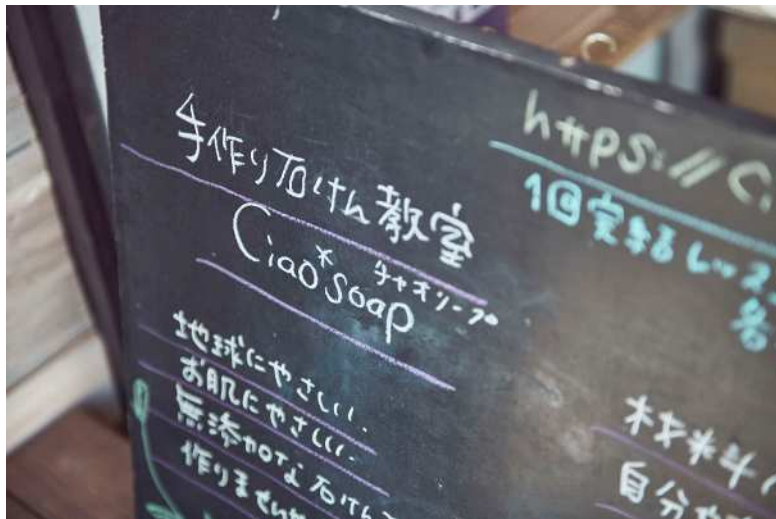 手作り石けん教室
Ciao*soap チャオソープ
地球にやさしい.
お肌にやさしい.
無添加な石けん
作りませんか
https://Ci
1回完結レッス
材料
自分